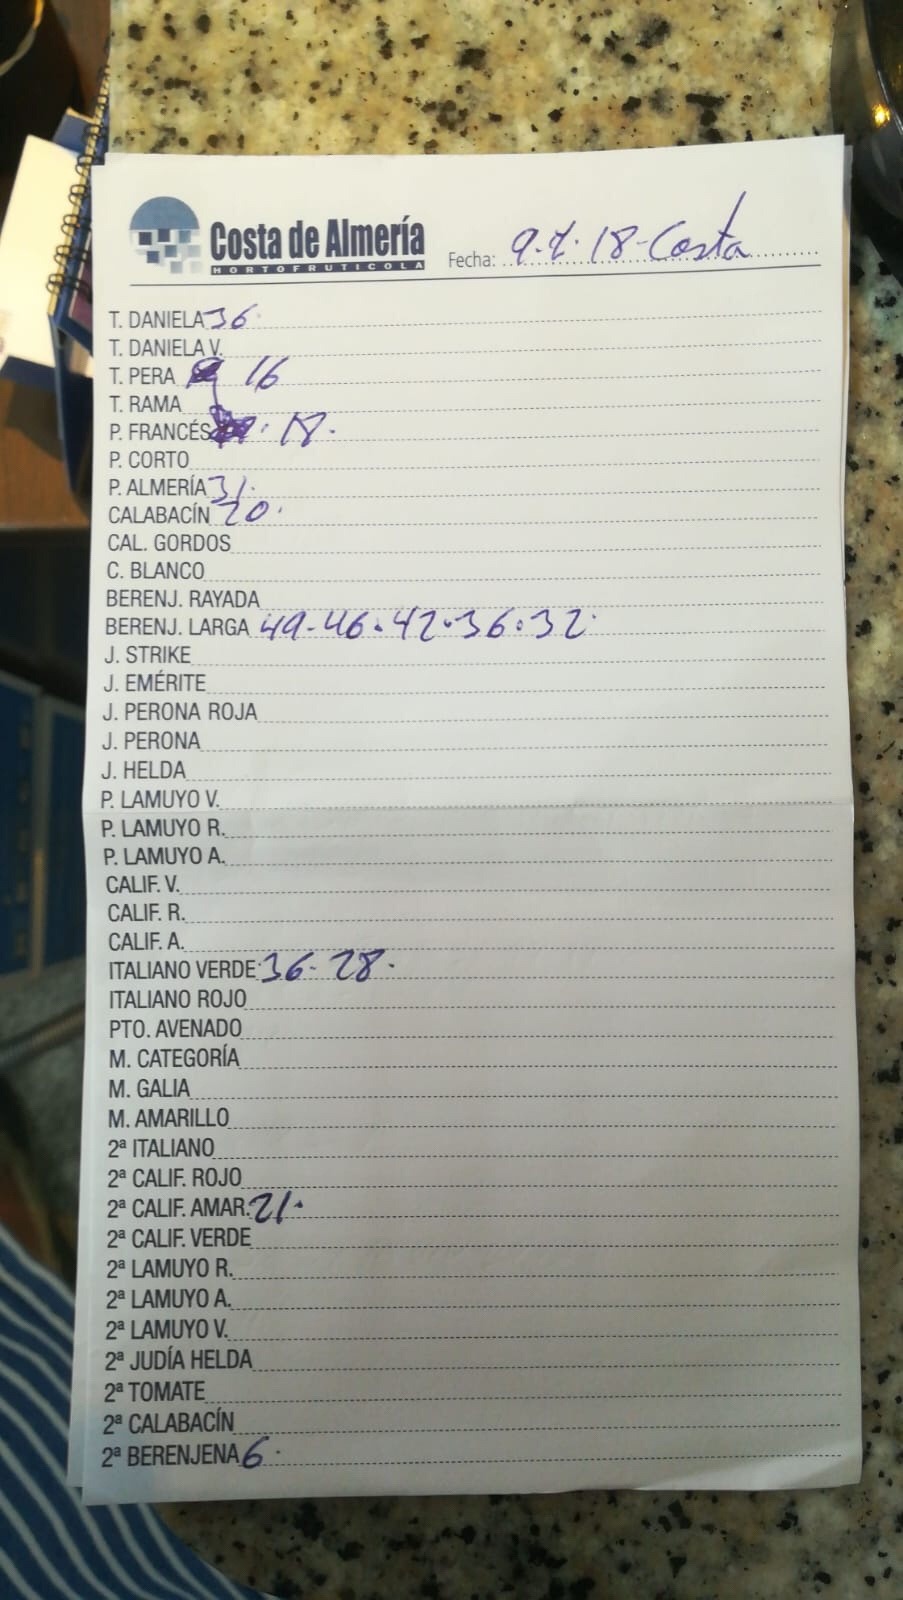 Costa de Almería
HORTOFRUTICOLA
Fecha: 9.7.18-Costa
T. DANIELA 36.
T. DANIELA V.
T. PERA 16
T. RAMA
P. FRANCÉS 18.
P. CORTO
P. ALMERÍA 31.
CALABACÍN 20.
CAL. GORDOS
C. BLANCO
BERENJ. RAYADA
BERENJ. LARGA 49-46.42.36.32.
J. STRIKE
J. EMÉRITE
J. PERONA ROJA
J. PERONA
J. HELDA
P. LAMUYO V.
P. LAMUYO R.
P. LAMUYO A.
CALIF. V.
CALIF. R.
CALIF. A.
ITALIANO VERDE 36. 28.
ITALIANO ROJO
PTO. AVENADO
M. CATEGORÍA
M. GALIA
M. AMARILLO
2ª ITALIANO
2ª CALIF. ROJO
2ª CALIF. AMAR. 21.
2ª CALIF. VERDE
2ª LAMUYO R.
2ª LAMUYO A.
2ª LAMUYO V.
2ª JUDÍA HELDA
2ª TOMATE
2ª CALABACÍN
2ª BERENJENA 6.